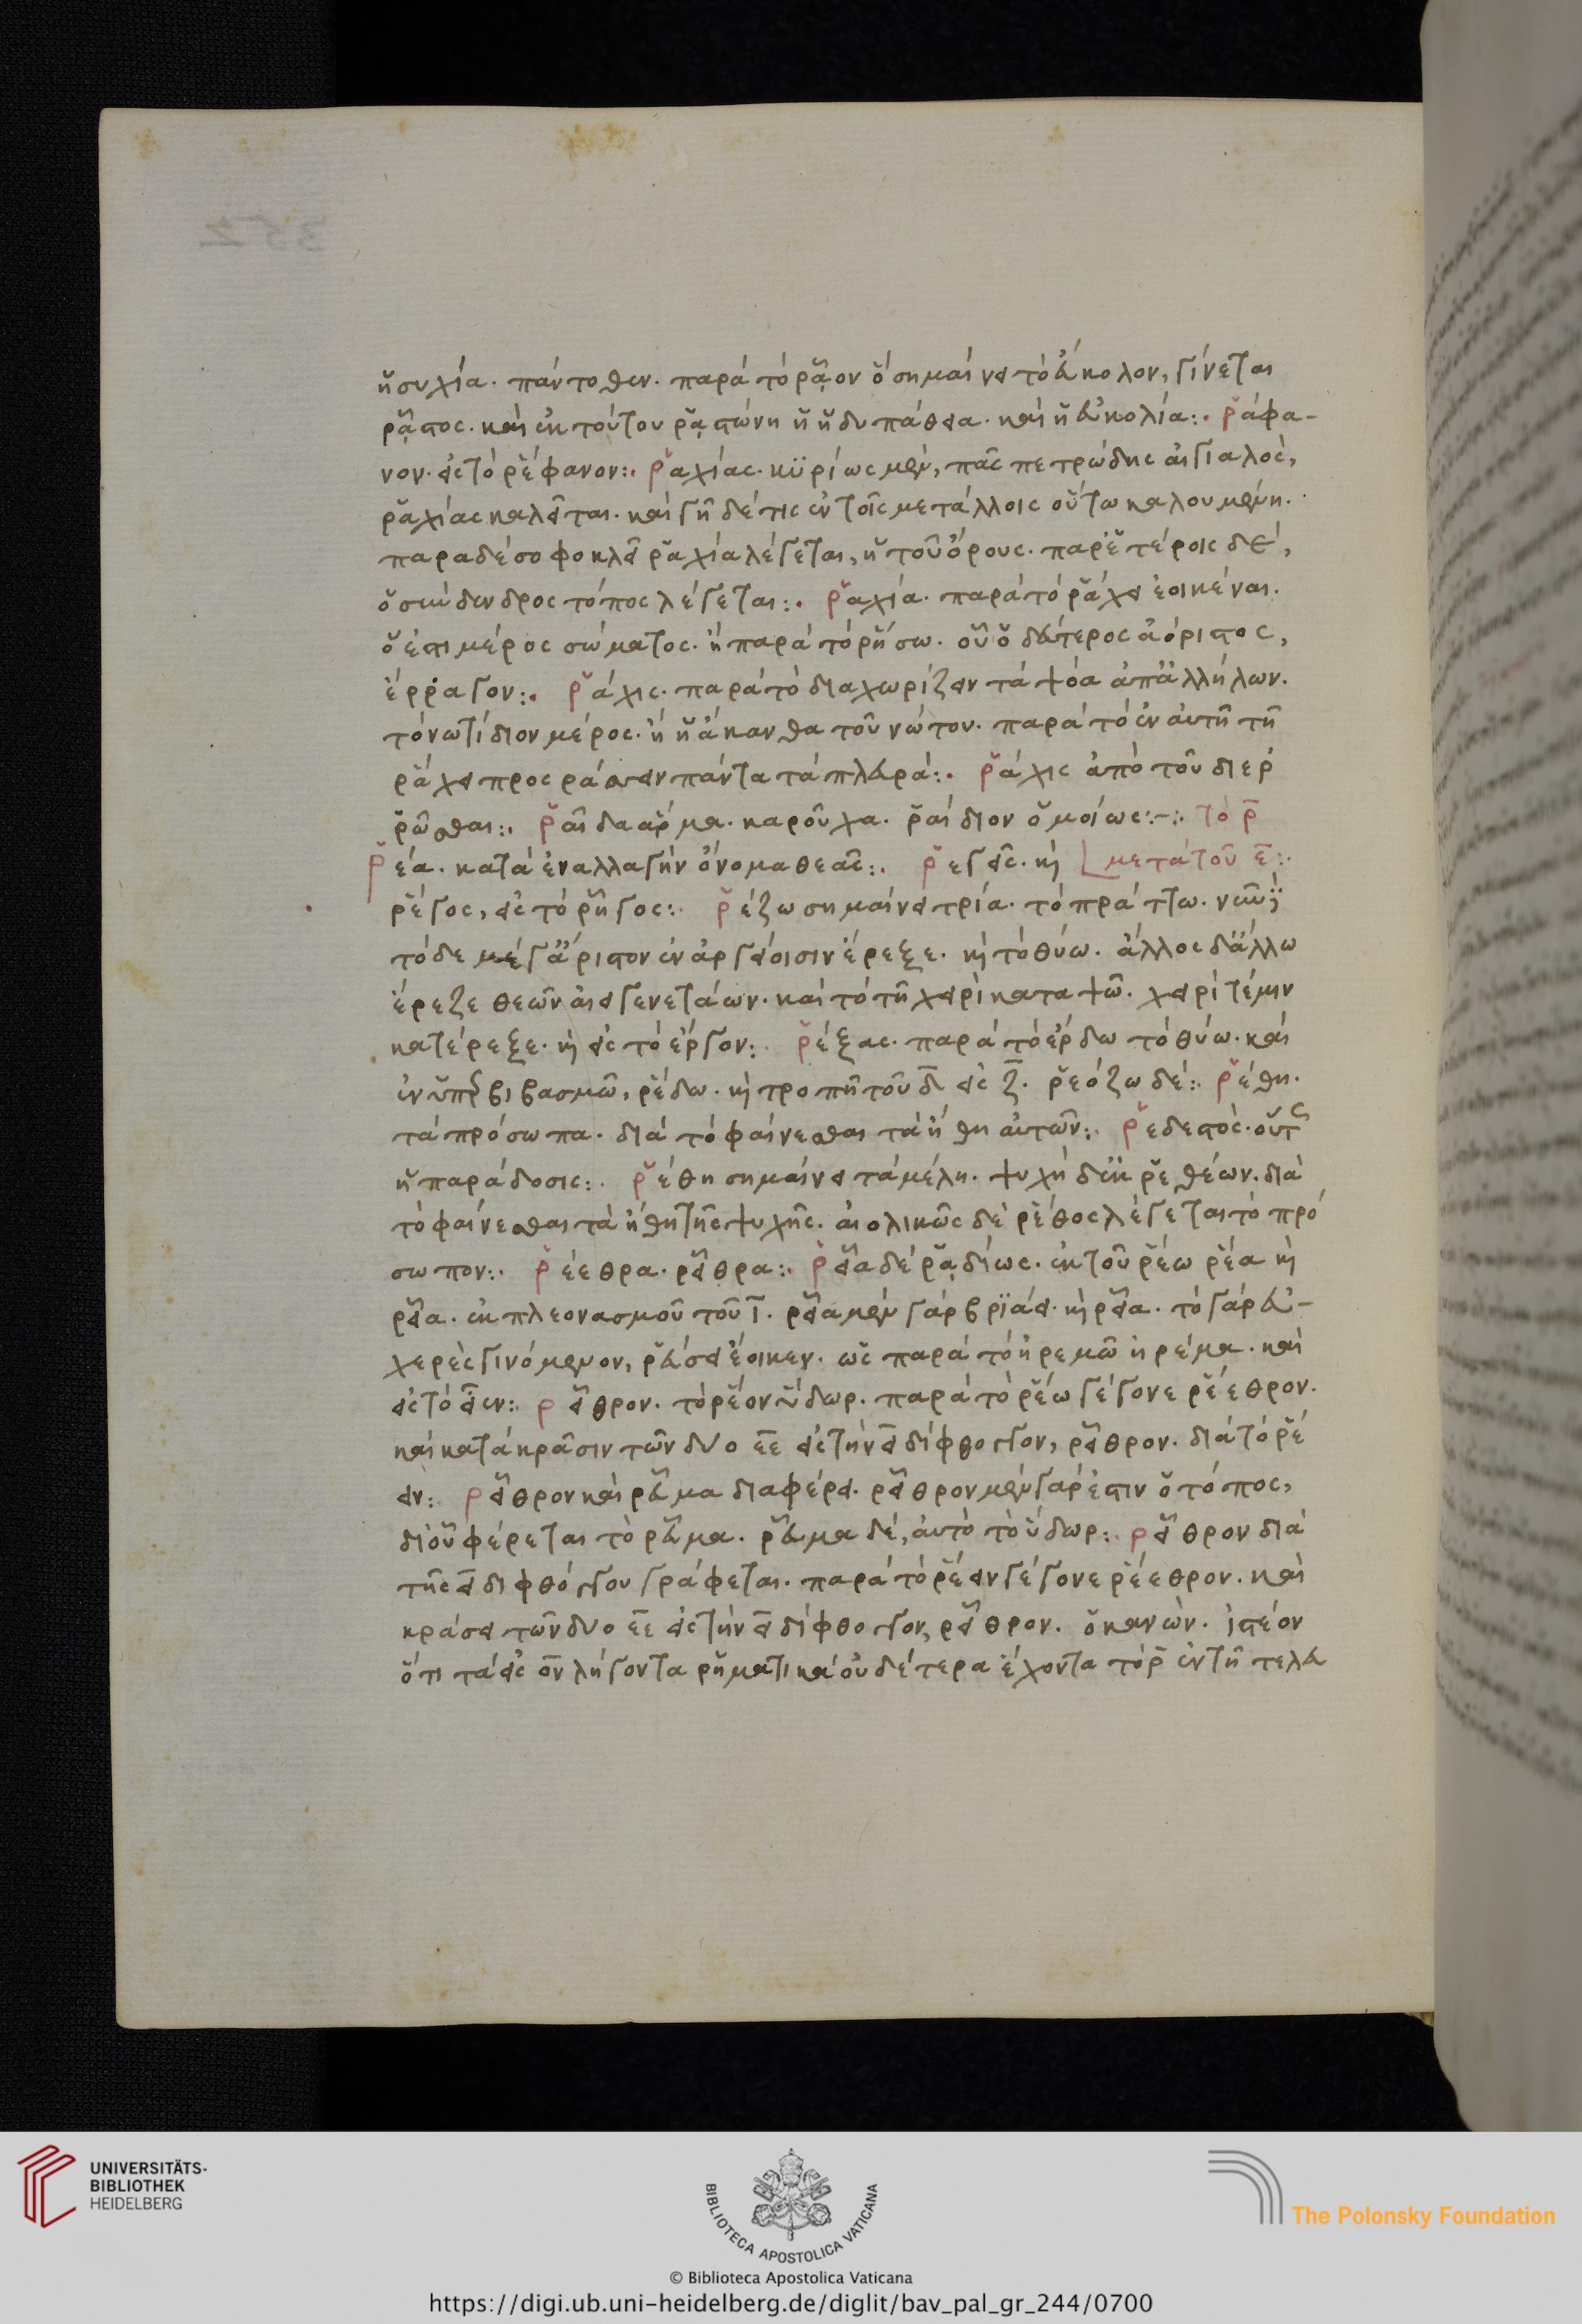 352
ἡσυχία. πάντοθεν. παρά τό ρᾷον ὅ σημαίνει τό εὔκολον, γίνεται
ρᾷστος. καί ἐκ τούτου ρᾳστώνη ἡ ἡδυπάθεια. καί ἡ εὐκολία:. ῥάφα-
νον. εἰς τό ρέφανον:. ῥαχίας. κϋρίως μέν, πᾶς πετρώδης αἰγιαλός,
ῥαχίας καλεῖται. καί γῆ δέ τις ἐν τοῖς μετάλλοις οὕτω καλουμένη.
παρα δέ σοφοκλεῖ ῥαχία λέγεται, ἡ τοῦ ὄρους. παρ' ἑτέροις δέ,
ὁ σύνδενδρος τόπος λέγεται:. ῥαχία. παρά τό ῥάχει ἐοικέναι.
ὅ ἐστι μέρος σώματος. ἤ παρά τό ῥήσσω. οὗ ὁ δεύτερος ἀόριστος,
ἔρραγον:. ῥάχις. παρά τό διαχωρίζειν τά ψόα ἀπ' ἀλλήλων.
τό νωτίδιον μέρος. ἤ ἡ ἄκανθα τοῦ νώτου. παρά τό ἐν αὐτῆ τῆ
ῥάχει προσράσσειν πάντα τά πλευρά:. ῥάχις ἀπό τοῦ διερ
ρῶσθαι:. ῥαῖδα ἅρμα. καροῦχα. ῥαίδιον ὁμοίως:-: τό ρ
ῥέα. κατά ἐναλλαγήν ὄνομα θεᾶς:. ῥεγεῖς. καὶ μετά τοῦ ε:.
ῥέγος, εἰς τό ῥῆγος:. ῥέζω σημαίνει τρία. τό πράττω. νῦν
τόδε μέγ' ἄριστον ἐν ἀργείοισιν ἔρεξε. καὶ τό θύω. ἄλλος δ' ἄλλω
ἔρεζε θεῶν αἰειγενετάων. καί τό τῆ χειρὶ καταψῶ. χειρί τέ μιν
κατέρεξε. καὶ εἰς τό ἔργον:. ῥέξας. παρά τό ἔρδω τό θύω. καί
ἐν ὑπερβιβασμῶ, ῥέδω. καὶ τροπῆ τοῦ δ εἰς ζ. ῥεόζω δέ:. ῥέθη.
τά πρόσωπα. διά τό φαίνεσθαι τά ἤθη αὐτῶν:. ῥεδεστός. οὕτως
ἡ παράδοσις:. ῥέθη σημαίνει τά μέλη. ψυχή δ' ἐκ ῥεθέων. διά
τό φαίνεσθαι τά ἤθη τῆς ψυχῆς. αἰολικῶς δέ ῥέθος λέγεται τό πρό
σωπον:. ῥέεθρα. ρεῖθρα:. ῥεῖα δέ ῥᾳδίως. ἐκ τοῦ ῥέω ῥέα καὶ
ρεῖα. ἐκ πλεονασμοῦ τοῦ ι. ρεῖα μέν γάρ βρϊάει. καὶ ρεῖα. τό γάρ εὐ-
χερές γινόμενον, ῥεύσει ἔοικεν. ὡς παρά τό ἠρεμῶ ἠρέμα. καί
εἰς τό εἶεν:. ρεῖθρον. τό ρέον ὕδωρ. παρά τό ρέω γέγονε ρέεθρον.
καί κατά κρᾶσιν τῶν δύο εε εἰς τήν ει δίφθογγον, ρεῖθρον. διά τό ῥέ
ειν:. ρεῖθρον καί ρεῦμα διαφέρει. ρεῖθρον μέν γάρ ἐστιν ὁ τόπος,
δι' οὗ φέρεται τό ρεῦμα. ρεῦμα δέ, αὐτό τό ὕδωρ:. ρεῖθρον διά
τῆς ει διφθόγγου γράφεται. παρά τό ρέειν γέγονε ρέεθρον. καί
κράσει τῶν δύο εε εἰς τήν ει δίφθογγον, ρεῖθρον. ὁ κανών. ἰστέον
ὅτι τά εἰς ον λήγοντα ρηματικά οὐδέτερα ἔχοντα τό ρ ἐν τῆ τελευ
UNIVERSITÄTS-
BIBLIOTHEK
HEIDELBERG
BIBLIOTECA APOSTOLICA VATICANA
The Polonsky Foundation
© Biblioteca Apostolica Vaticana
https://digi.ub.uni-heidelberg.de/diglit/bav_pal_gr_244/0700